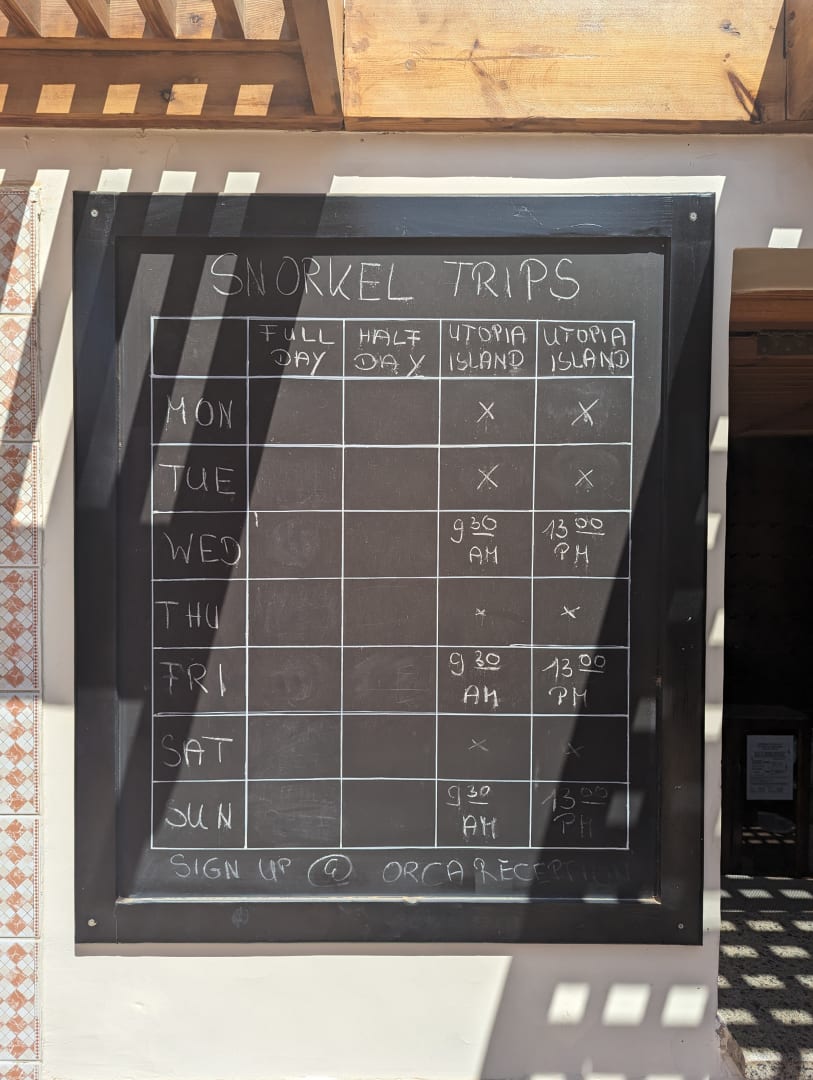 SNORKEL TRIPS
FULL DAY HALF DAY UTOPIA ISLAND UTOPIA ISLAND
MON X X
TUE X X
WED 9 30 AM 13 00 PM
THU X X
FRI 9 30 AM 13 00 PM
SAT X X
SUN 9 30 AM 13 00 PM
SIGN UP @ ORCA RECEPTION